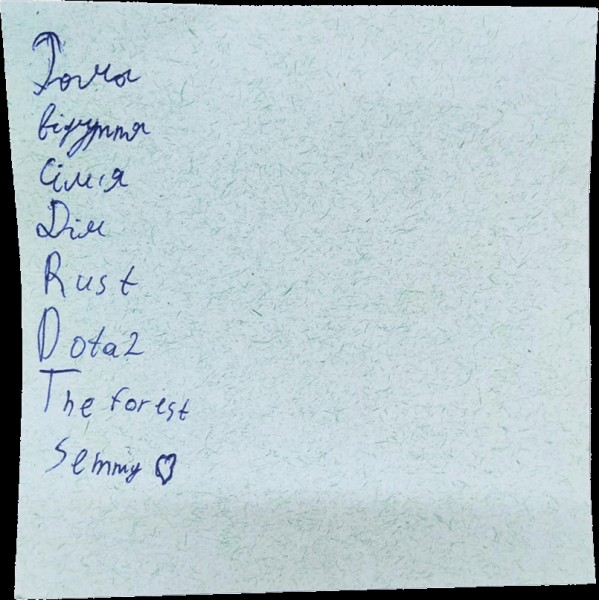 Рома
відчуття
сім'я
Дім
Rust
Dota2
The forest
Semmy ♡